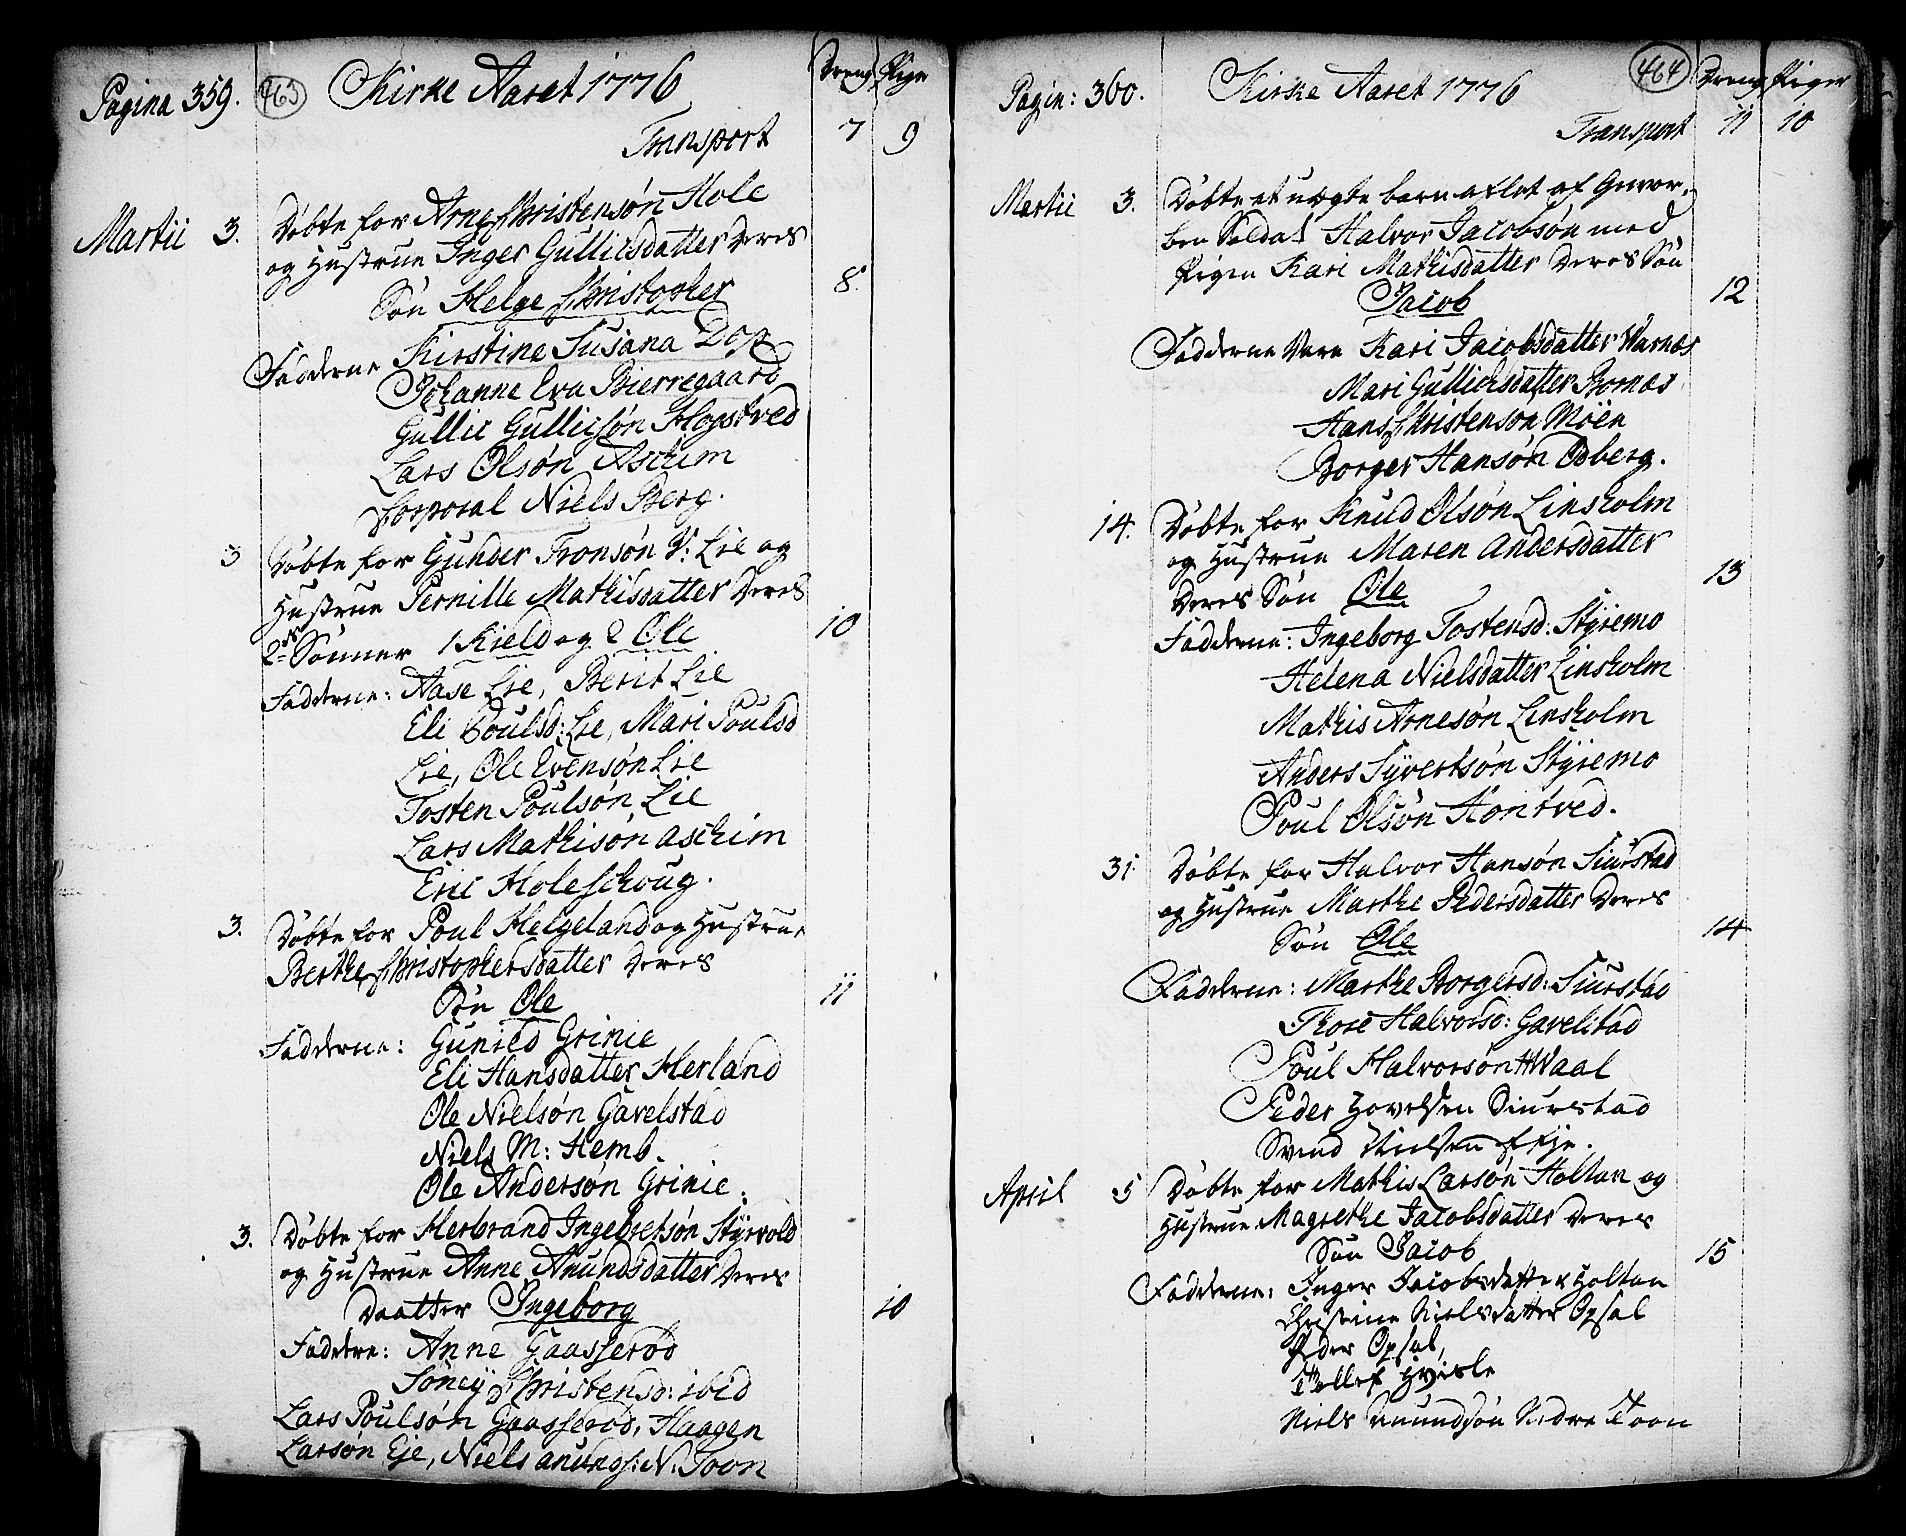 Pagina 359. 463 Kirke Aaret 1776 Dreng Piger
Transport 7 9
Martii 3. Døbte for Arne Christensøn Hole
og Hustrue Inger Gullicsdatter Deres
Søn Helge Christopher 8.
Fadderne Kirstine Susana Dop
Johanne Eva Bierregaard
Gullic Gullicsøn Hogstved
Lars Olsøn Aschim
Corporal Niels Berg.
3 Døbte for Gunder Tronsøn V: Lie og
Hustrue Pernille Mathisdatter Deres
2de Sønner 1 Kield og 2 Ole 10
Fadderne: Aase Lie, Berit Lie
Eli Poulsd: Lie, Mari Poulsd
Lie, Ole Evensøn Lie
Tosten Poulsøn Lie
Lars Mathisøn Aschim
Eric Holeschoug.
3. Døbte for Poul Helgeland og Hustrue
Berthe Christophersdatter Deres
Søn Ole 11
Fadderne: Gunild Grinie
Eli Hansdatter Herland
Ole Nielsøn Gavelstad
Niels M: Hemb.
Ole Andersøn Grinie.
3. Døbte for Herbrand Ingebretsøn Styrvold
og Hustrue Anne Anundsdatter Deres
Daatter Ingeborg 10
Faddere: Anne Gaasserød
Søney Christensd: ibid
Lars Poulsøn Gaasserød, Haagen
Larsøn Eje, Niels anunds: N: Toon
Pagin: 360. Kirke Aaret 1776 464 Dreng Piger
Transport 11 10
Martii 3. Døbte et uægte barn aflet af Gevor-
ben Soldat Halvor Jacobsøn med
Pigen Kari Mathisdatter Deres Søn
Jacob 12
Fadderne Vare Kari Jacobsdatter Warnæs
Mari Gullichsdatter Bornæs
Hans Christenson Moen
Borger Hansøn Odberg.
14. Døbte for Knud Olsøn Linsholm
og Hustrue Maren Andersdatter
Deres Søn Ole 13
Fadderne: Ingeborg Tostensd: Styremo
Helena Nielsdatter Linsholm
Mathis Arnesøn Linsholm
Anders Syvertsøn Styremo
Poul Olsøn Hontved.
31 Døbte for Halvor Hansøn Siurstad
og Hustrue Marthe Pedersdatter Deres
Søn Ole 14
Fadderne: Marthe Borgersd: Siurstad
Thore Halvorsd: Gavelstad
Poul Halvorsøn Waal
Peder Hovelsen Siurstad
Svend Nielsen Eje.
April 5 Døbte for Mathis Larsøn Holtan og
Hustrue Magrethe Jacobsdatter Deres
Søn Jacob 15
Fadderne: Inger Jacobsdatter Holtan
Christine Nielsdatter Opsal
Peder Opsal,
Tollef Hvisle
Niels Anundsøn Nedre Toon